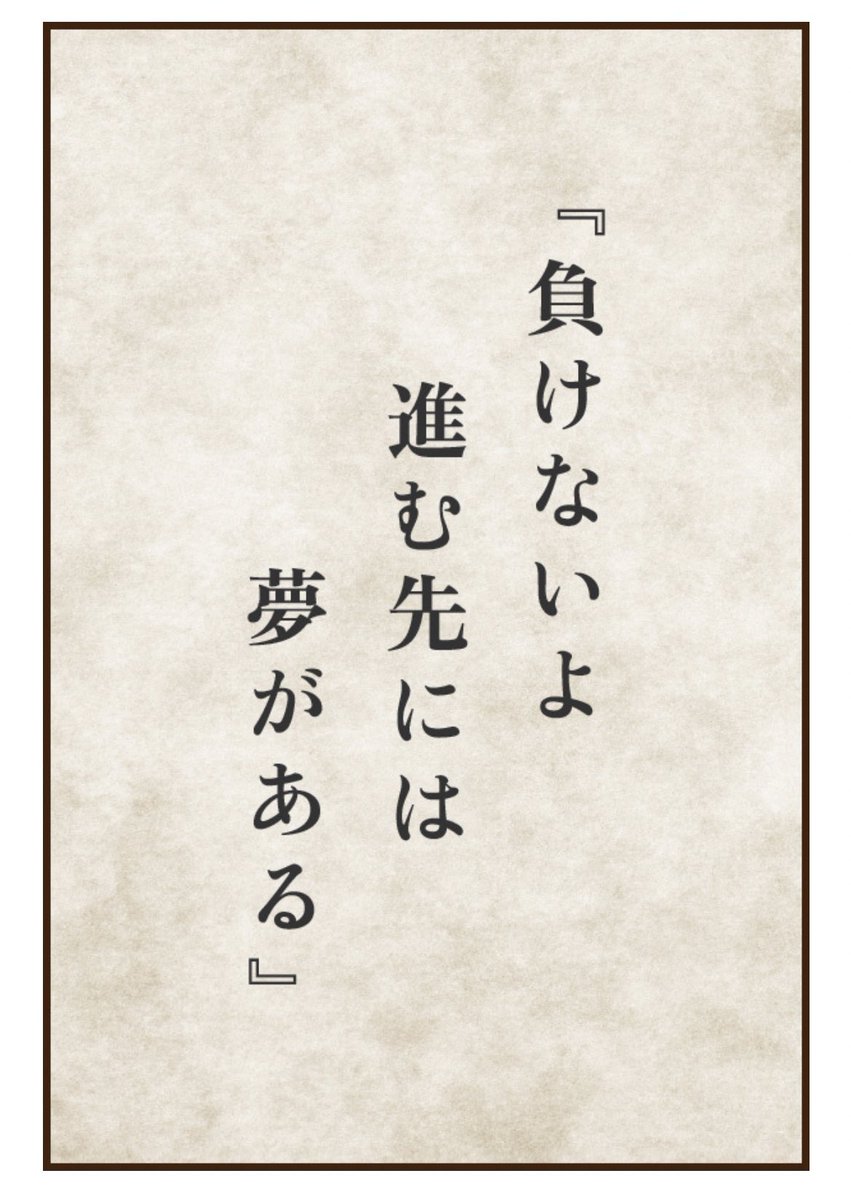 『負けないよ
進む先には
夢がある』